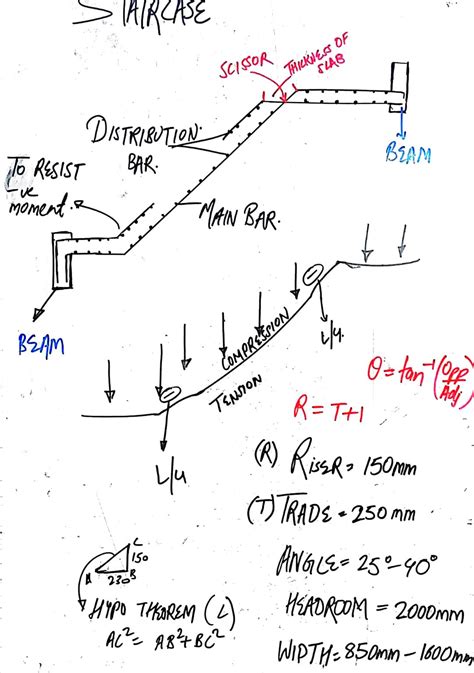 STAIRCASE
SCISSOR
THICKNESS OF
SLAB
DISTRIBUTION
BAR.
BEAM
TO RESIST
-ve
moment.
MAIN BAR.
BEAM
COMPRESSION
TENSION
L/4.
L/4
θ = tan⁻¹(Opp/Adj)
R = T+1
(R) RISER = 150mm
(T) TRADE = 250mm
ANGLE = 25°-40°
HEADROOM = 2000mm
WIDTH = 850mm - 1600mm
C
150
A 230 B
HYPO THEOREM (L)
AC² = AB² + BC²